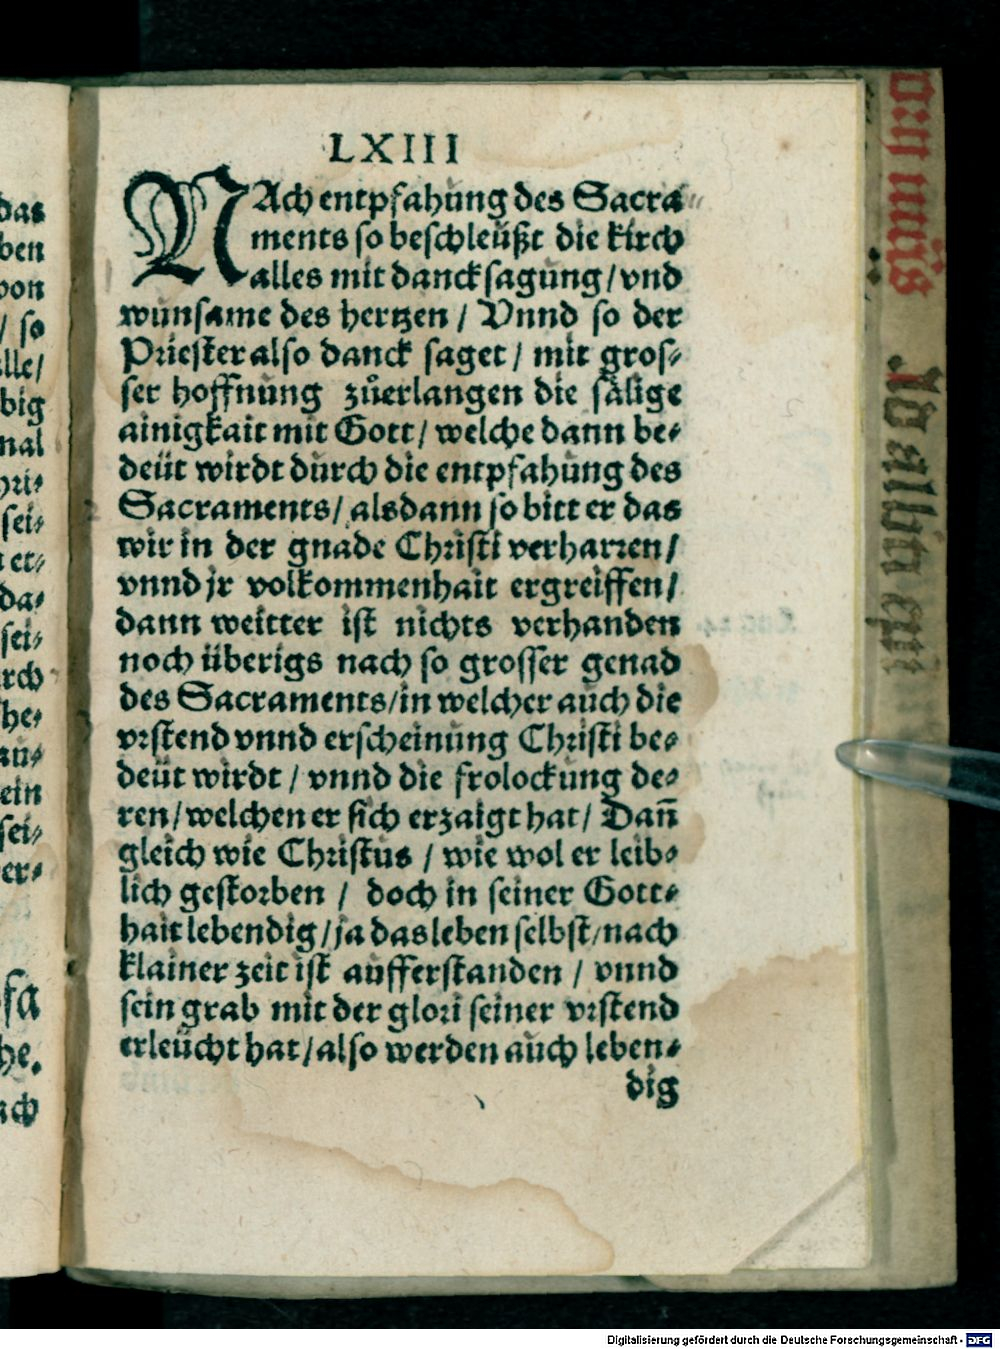 LXIII
NAch entpfahung des Sacra
ments so beschleüßt die kirch
alles mit dancksagung/vnd
wunsame des hertzen / Vnnd so der
Priester also danck saget / mit gros⸗
ser hoffnung zůerlangen die sälige
ainigkait mit Gott/ welche dann be⸗
deüt wirdt durch die entpfahung des
Sacraments/ alsdann so bitt er das
wir in der gnade Christi verharren/
vnnd jr volkommenhait ergreiffen/
dann weitter ist nichts verhanden
noch überigs nach so grosser genad
des Sacraments/in welcher auch die
vrstend vnnd erscheinung Christi be⸗
deüt wirdt / vnnd die frolockung de⸗
ren/welchen er sich erzaigt hat/ Dañ
gleich wie Christus / wie wol er leib⸗
lich gestorben / doch in seiner Gott⸗
hait lebendig/ja das leben selbst/nach
klainer zeit ist aufferstanden / vnnd
sein grab mit der glori seiner vrstend
erleücht hat/also werden auch leben⸗
dig
das
ben
von
/ so
lle/
big
nal
hri⸗
sei⸗
et⸗
da⸗
sei⸗
rch
he⸗
au⸗
ein
sei⸗
er⸗
fa
he.
ach
Digitalisierung gefördert durch die Deutsche Forschungsgemeinschaft - DFG